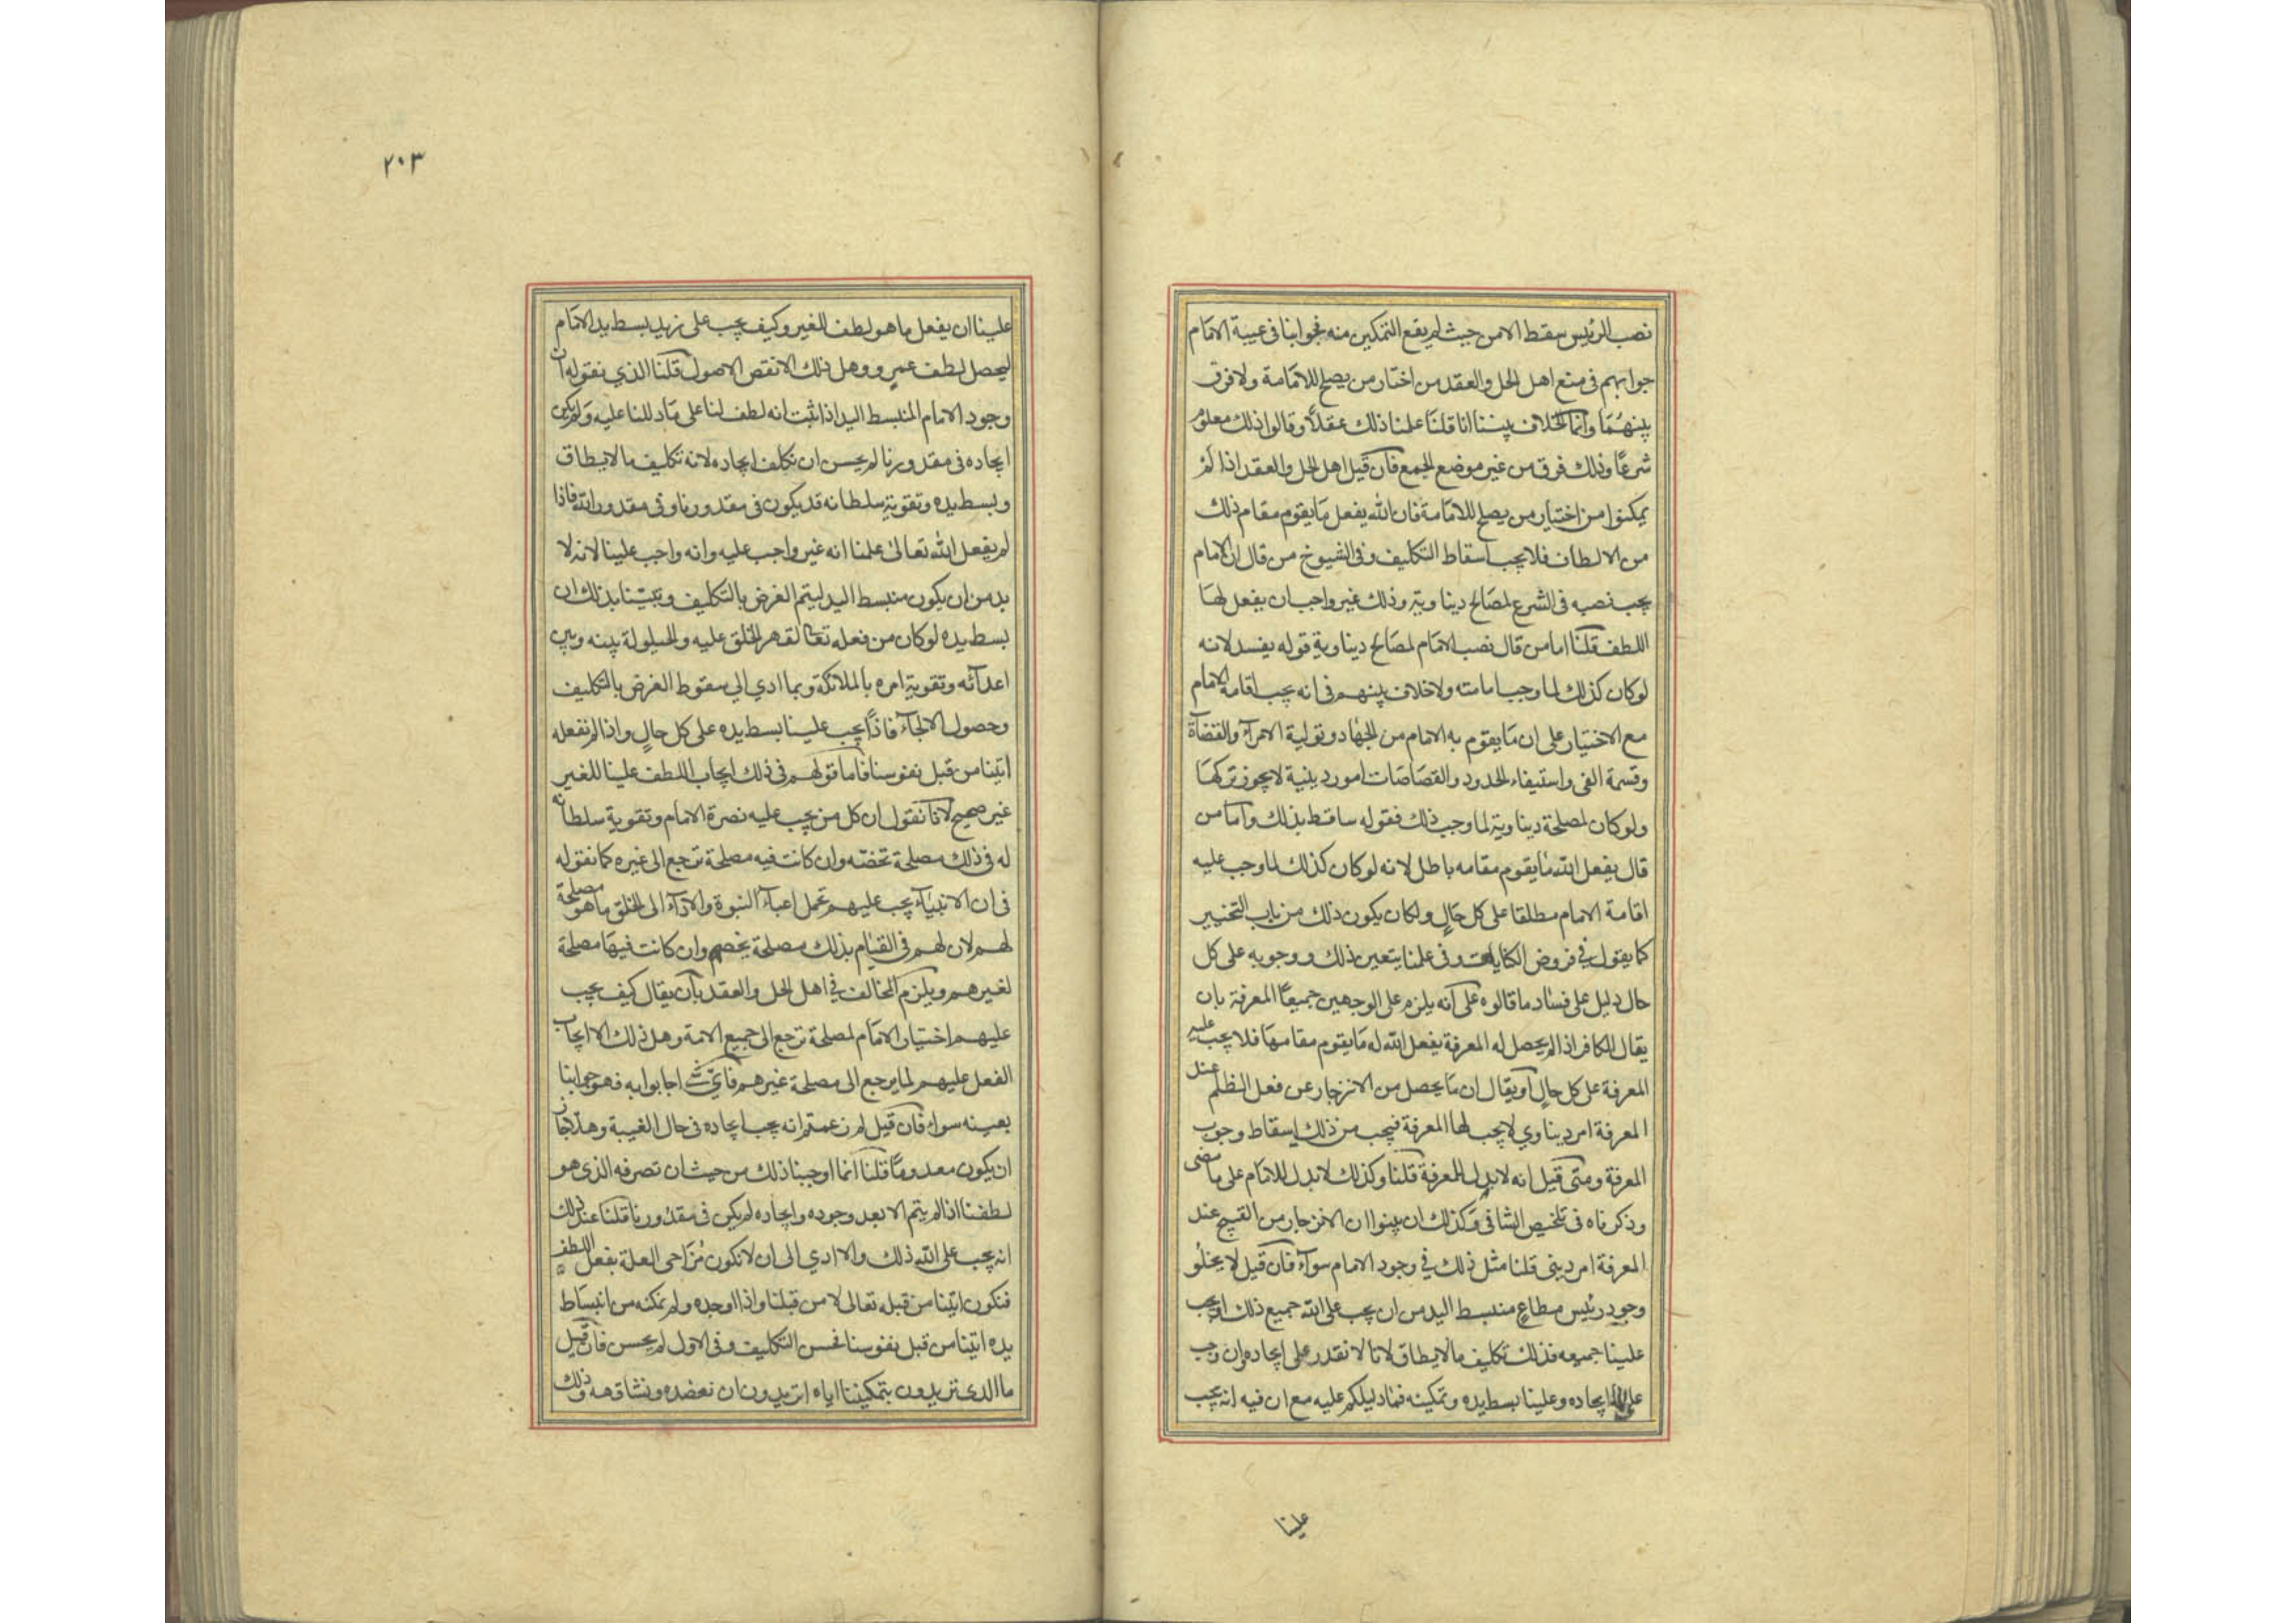 نصب الرئيس سقط الامن حيث لم يقع التمكين منه فجوابنا فى غيبة الامام
جوابهم فى منع اهل الحل والعقد من اختار من يصلح للامامة ولا فرق
بينهما وانما الخلاف بيننا انا قلنا علمنا ذلك عقلا وقالوا ذلك معلوم
شرعا وذلك فرق من غير موضع الجمع فان قيل اهل الحل والعقد اذا لم
يمكنوا من اختيار من يصلح للامامة فان الله يفعل ما يقوم مقام ذلك
من الالطاف فلا يجب اسقاط التكليف وفى الشيوخ من قال ان الامام
يجب نصبه فى الشرع لمصالح ديناوية وذلك غير واجب ان يفعل لها
اللطف قلنا اما من قال نصب الامام لمصالح ديناوية قوله يفسد لانه
لو كان كذلك لما وجب امامته ولا خلاف بينهم فى انه يجب اقامة الامام
مع الاختيار على ان ما يقوم به الامام من الجهاد وتولية الامرآء والقضاة
وقسمة الفى واستيفاء الحدود والقصاصات امور دينية لا يجوز تركها
ولو كان لمصلحة ديناوية لما وجب ذلك فقوله ساقط بذلك واما من
قال يفعل الله ما يقوم مقامه باطل لانه لو كان كذلك لما وجب عليه
اقامة الامام مطلقا على كل حال ولكان يكون ذلك من باب التخيير
كما يقول فى فروض الكفايات وفى علمنا بتعين ذلك ووجوبه على كل
حال دليل على فساد ما قالوه على انه يلزم على الوجهين جميعا المعرفة بان
يقال الكافر اذا لم يحصل له المعرفة يفعل الله له ما يقوم مقامها فلا يجب عليه
المعرفة على كل حال او يقال ان ما يحصل من الانزجار عن فعل الظلم عند
المعرفة امر ديناوي لا يجب لها المعرفة فيجب من ذلك اسقاط وجوب
المعرفة ومتى قيل انه لا بدل للمعرفة قلنا وكذلك لا بدل للامام على ما مضى
وذكرناه فى تلخيص الشافى وكذلك ان بينوا ان الانزجار من القبيح عند
المعرفة امر دينى قلنا مثل ذلك فى وجود الامام سوآء فان قيل لا يخلو
وجود رئيس مطاع منبسط اليد من ان يجب على الله جميع ذلك او يجب
علينا جميعه فذلك تكليف ما لا يطاق لانا لا نقدر على ايجاده وان وجب
على الله ايجاده وعلينا بسط يده وتمكينه فما دليلكم عليه مع ان فيه انه يجب
علينا
٢٠٣
علينا ان يفعل ما هو لطف للغير وكيف يجب على زيد بسط يد الامام
ليحصل لطف عمرو وهل ذلك الا نقض الاصول قلنا الذي نقوله ان
وجود الامام المنبسط اليد اذا ثبت انه لطف لنا على ما دللنا عليه ولم يكن
ايجاده فى مقدورنا لم يحسن ان نكلف ايجاده لانه تكليف ما لا يطاق
وبسط يده وتقوية سلطانه قد يكون فى مقدورنا وفى مقدور الله فاذا
لم يفعل الله تعالى علمنا انه غير واجب عليه وانه واجب علينا لانه لا
بد من ان يكون منبسط اليد ليتم الغرض بالتكليف وبينا بذلك ان
بسط يده لو كان من فعله تعالى لقهر الخلق عليه والحيلولة بينه وبين
اعدآئه وتقوية امره بالملائكة وبما ادي الى سقوط الغرض بالتكليف
وحصول الالجآء فاذا يجب علينا بسط يده على كل حال واذا لم نفعله
اتينا من قبل نفوسنا فاما قولهم فى ذلك ايجاب اللطف علينا للغير
غير صحيح لانا نقول ان كل من يجب عليه نصرة الامام وتقوية سلطانه
له فى ذلك مصلحة تخصه وان كانت فيه مصلحة ترجع الى غيره كما نقوله
فى ان الانبيآء يجب عليهم تحمل اعبآء النبوة والادآء الى الخلق ما هو مصلحة
لهم لان لهم فى القيام بذلك مصلحة يخصهم وان كانت فيها مصلحة
لغيرهم ويلزم المخالف فى اهل الحل والعقد بان يقال كيف يجب
عليهم اختيار الامام لمصلحة ترجع الى جميع الامة وهل ذلك الا ايجاب
الفعل عليهم لما يرجع الى مصلحة غيرهم فاى شئ اجابوا به فهو جوابنا
بعينه سواء فان قيل لم زعمتم انه يجب ايجاده فى حال الغيبة وهلا جاز
ان يكون معدوما قلنا انما اوجبنا ذلك من حيث ان تصرفه الذى هو
لطفنا اذا لم يتم الا بعد وجوده وايجاده لم يكن فى مقدورنا قلنا عند ذلك
انه يجب على الله ذلك والا ادي الى ان لا نكون مزاحى العلة بفعل اللطف
فنكون اتينا من قبله تعالى لا من قبلنا واذا اوجده ولم نمكنه من انبساط
يده اتينا من قبل نفوسنا فحسن التكليف وفى الاول لم يحسن فان قيل
ما الذى تريدون بتمكيننا اياه اتريدون ان نعضده ونشاقهه وذلك